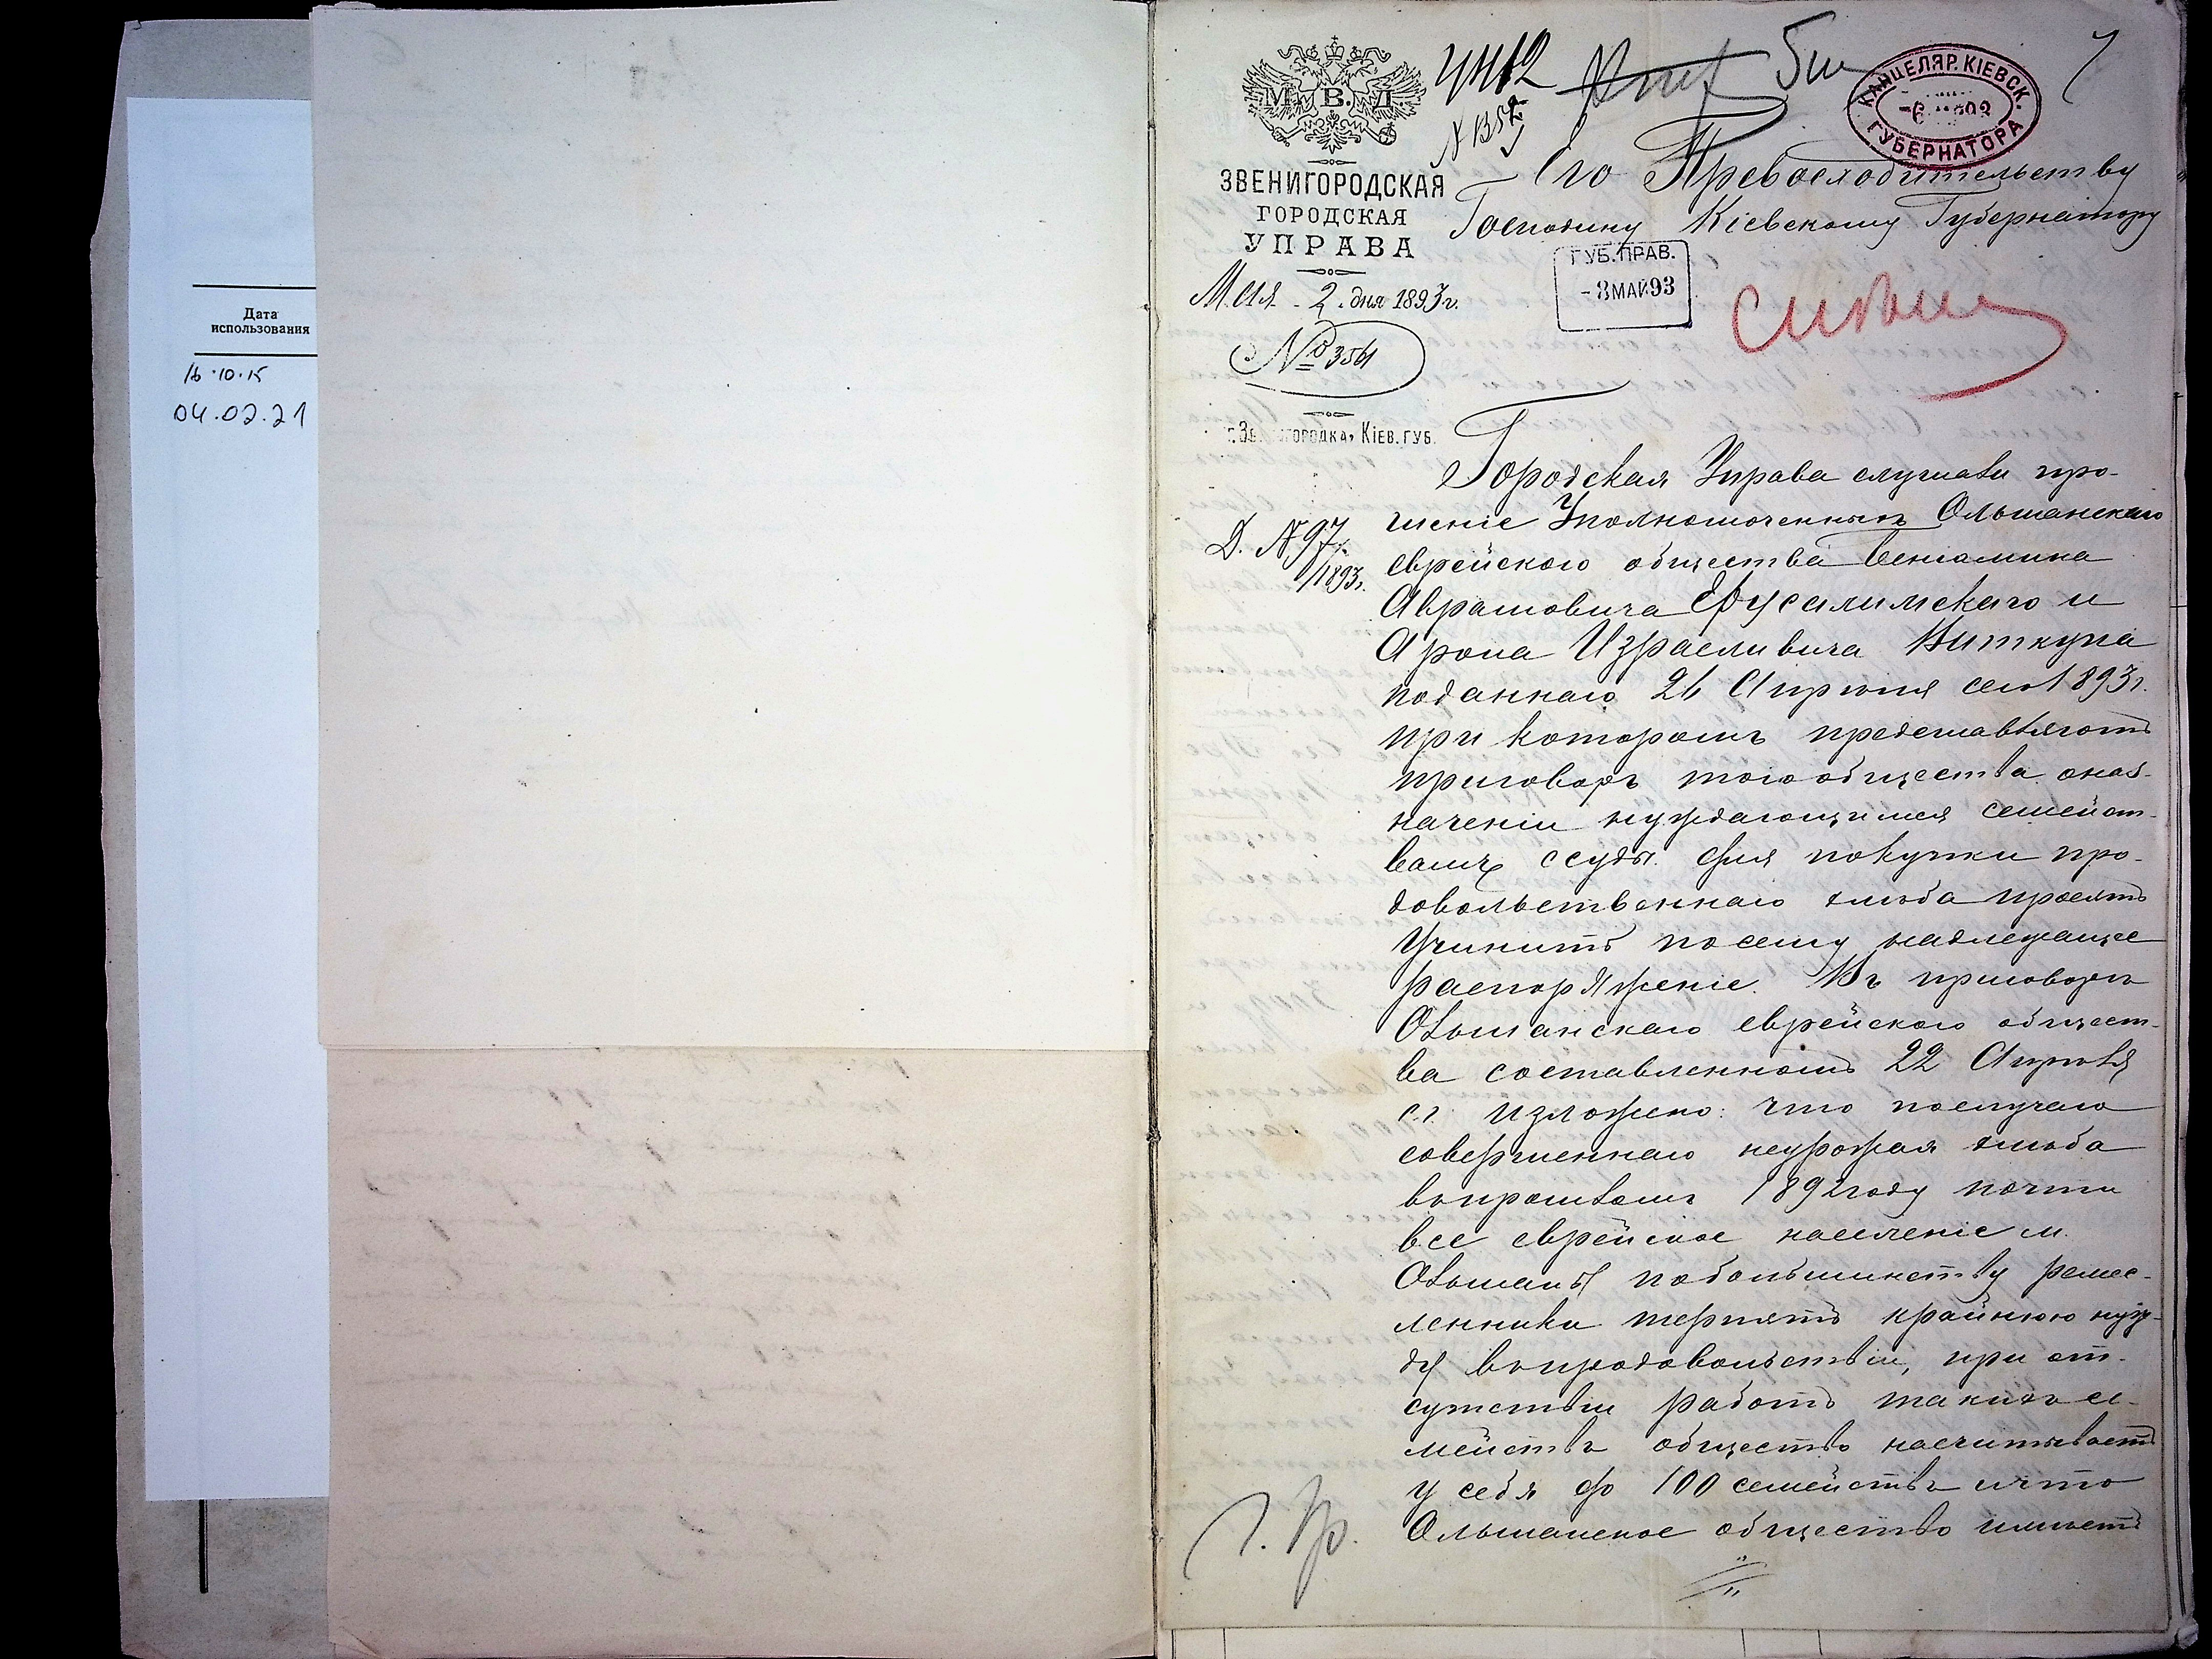 Дата
использования
16.10.15
04.02.21
М.В.Д.
ЗВЕНИГОРОДСКАЯ
ГОРОДСКАЯ
УПРАВА
Мая 2 дня 1893 г.
№ 3561
г. Звенигородка, Кіев. губ.
Д. № 97
1893 г.
КАНЦЕЛЯР. КІЕВСК.
ГУБЕРНАТОРА
7
Его Превосходительству
Господину Кіевскому Губернатору
ГУБ. ПРАВ.
- 8 МАЙ 93
Городская Управа слушали про-
шеніе Уполномоченныхъ Ольшанскаго
еврейского общества Веніамина
Аврамовича Ерусалимскаго и
Арона Израеливича Виткупа
поданнаго 26 Апрѣля сего 1893 г.
при которомъ представляютъ
приговоръ того общества о наз-
наченіи нуждающимся семейст-
вамъ ссуды для покупки про-
довольственнаго хлѣба просятъ
учинить по сему надлежащее
распоряженіе. Въ приговорѣ
Ольшанскаго еврейского общест-
ва составленномъ 22 Апрѣля
с.г. изложено: что послучаю
совершеннаго неурожая хлѣба
въ прошломъ 1892 году почти
все еврейское населеніе м.
Ольшаны по большинству ремес-
ленники терпятъ крайнюю нуж-
ду въ продовольствіи, при от-
сутствіи работъ такихъ се-
мействъ общество насчитываетъ
у себя до 100 семействъ и что
Ольшанское общество имѣетъ